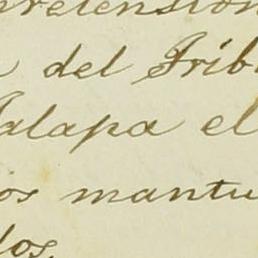 pretension
del Trib
Jalapa el
os mantu
dos.